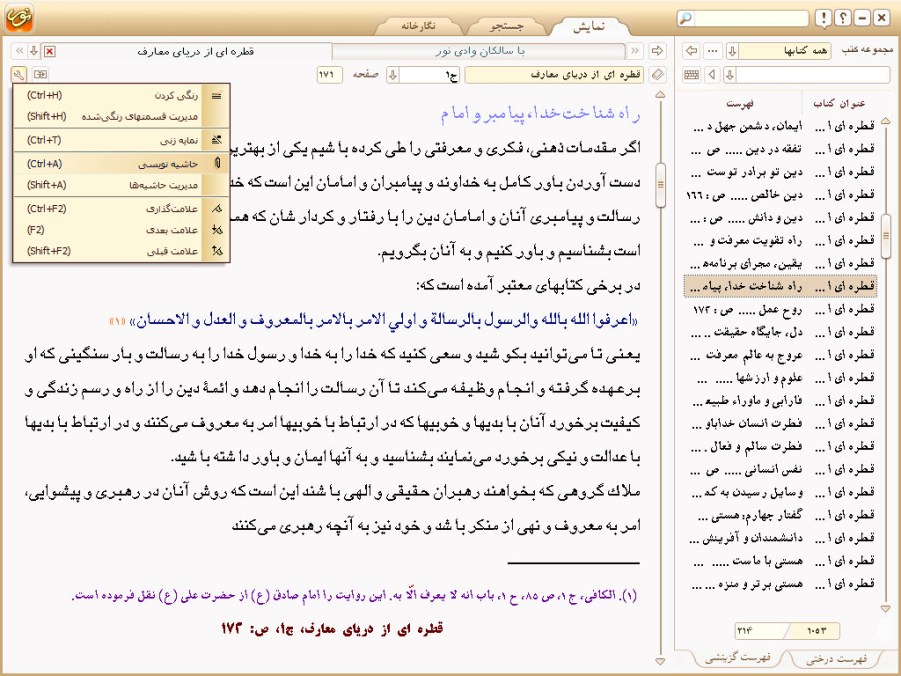 نمایش
جستجو
نگارخانه
مجموعه کتب
همه کتابها
با سالکان وادی نور
قطره ای از دریای معارف
قطره ای از دریای معارف
ج۱
صفحه
۱۷۱
رنگی کردن (Ctrl+H)
مدیریت قسمتهای رنگی‌شده (Shift+H)
نمایه زنی (Ctrl+T)
حاشیه نویسی (Ctrl+A)
مدیریت حاشیه‌ها (Shift+A)
علامت‌گذاری (Ctrl+F2)
علامت بعدی (F2)
علامت قبلی (Shift+F2)
راه شناخت خدا، پیامبر و امام
اگر مقدمات ذهنی، فکری و معرفتی را طی کرده باشیم یکی از بهترین
دست آوردن باور کامل به خداوند و پیامبران و امامان این است که خد
رسالت و پیامبری آنان و امامان دین را با رفتار و کردارشان که همه
است بشناسیم و باور کنیم و به آنان بگرویم.
در برخی کتابهای معتبر آمده است که:
«اعرفوا الله بالله والرسول بالرسالة و اولي الامر بالامر بالمعروف و العدل و الاحسان» «۱»
یعنی تا می‌توانید بکوشید و سعی کنید که خدا را به خدا و رسول خدا را به رسالت و بار سنگینی که او
برعهده گرفته و انجام وظیفه می‌کند تا آن رسالت را انجام دهد و ائمۀ دین را از راه و رسم زندگی و
کیفیت برخورد آنان با بدیها و خوبیها که در ارتباط با خوبیها امر به معروف می‌کنند و در ارتباط با بدیها
با عدالت و نیکی برخورد می‌نمایند بشناسید و به آنها ایمان و باور داشته باشید.
ملاك گروهی که بخواهند رهبران حقیقی و الهی باشند این است که روش آنان در رهبری و پیشوایی،
امر به معروف و نهی از منکر باشد و خود نیز به آنچه رهبری می‌کنند
(۱). الکافی، ج ۱، ص ۸۵، ح ۱، باب انه لا یعرف الّا به. این روایت را امام صادق (ع) از حضرت علی (ع) نقل فرموده است.
قطره ای از دریای معارف، ج۱، ص: ۱۷۳
عنوان کتاب فهرست
قطره ای ا ... ایمان، دشمن جهل د ...
قطره ای ا ... تفقه در دین ..... ص ...
قطره ای ا ... دین تو برادر توست ...
قطره ای ا ... دین خالص ..... ص : ۱۶۶
قطره ای ا ... دین و دانش ..... ص : ...
قطره ای ا ... راه تقویت معرفت و ...
قطره ای ا ... یقین، مجرای برنامه‌ه ...
قطره ای ا ... راه شناخت خدا، پیام ...
قطره ای ا ... روح عمل ..... ص : ۱۷۳
قطره ای ا ... دل، جایگاه حقیقت ...
قطره ای ا ... عروج به عالم معرفت ...
قطره ای ا ... علوم و ارزشها ..... ...
قطره ای ا ... فارابی و ماوراء طبیعه ...
قطره ای ا ... فطرت انسان خداباو ...
قطره ای ا ... فطرت سالم و فعال ...
قطره ای ا ... نفس انسانی ..... ص ...
قطره ای ا ... وسایل رسیدن به کم ...
قطره ای ا ... گفتار چهارم: هستی ...
قطره ای ا ... دانشمندان و آفرینش ...
قطره ای ا ... هستی با ماست ..... ...
قطره ای ا ... هستی برتر و منزه ... ...
۱۰۵۳ / ۲۱۴
فهرست درختی
فهرست گزینشی